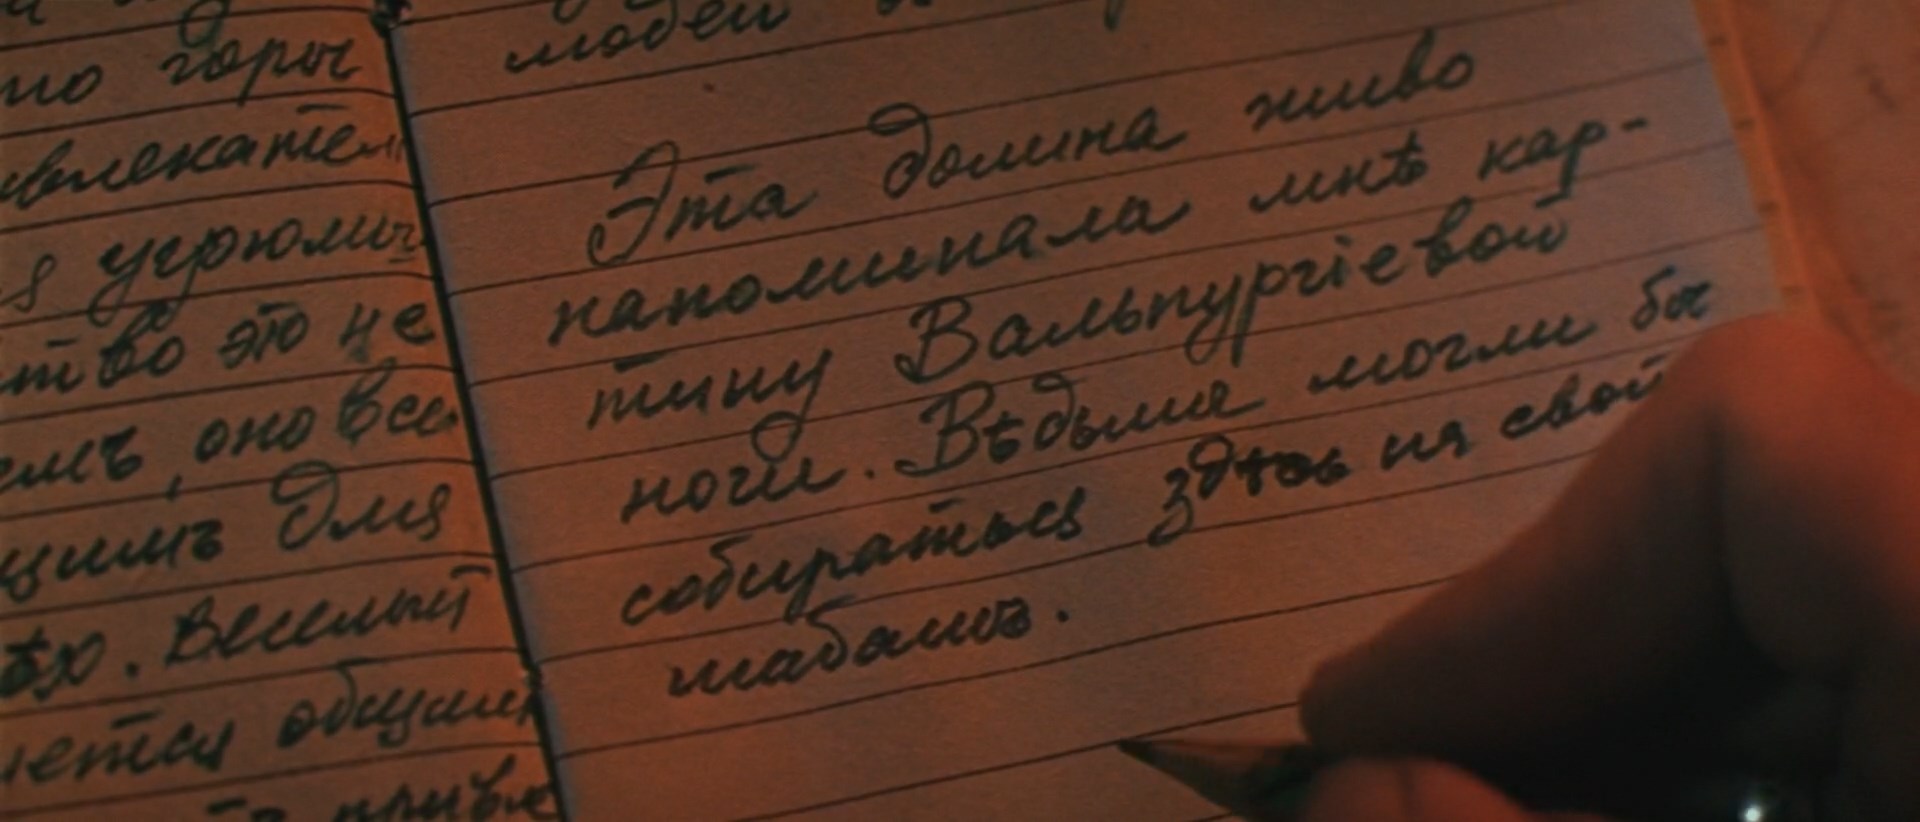 но горы
влекател
я угрюмы
ство это не
емъ, оно все
щимъ Для
ѣхъ. Веселый
яется общим
привле
людей
Эта долина живо
напоминала мнѣ кар-
тину Вальпургіевой
ночи. Вѣдьмы могли бы
собираться здѣсь на свой
шабашъ.